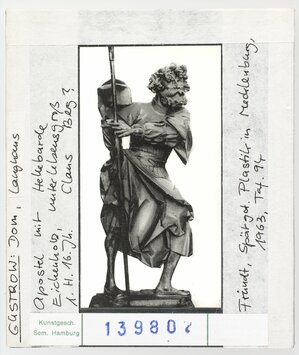 GÜSTROW: Dom, Langhaus
Apostel mit Hellebarde
Eichenholz, unterlebensgroß
1. H. 16. Jh. Claus Berg?
Fründt, Spätgot. Plastik in Mecklenburg,
1963, Taf. 94
Kunstgesch.
Sem. Hamburg
139807